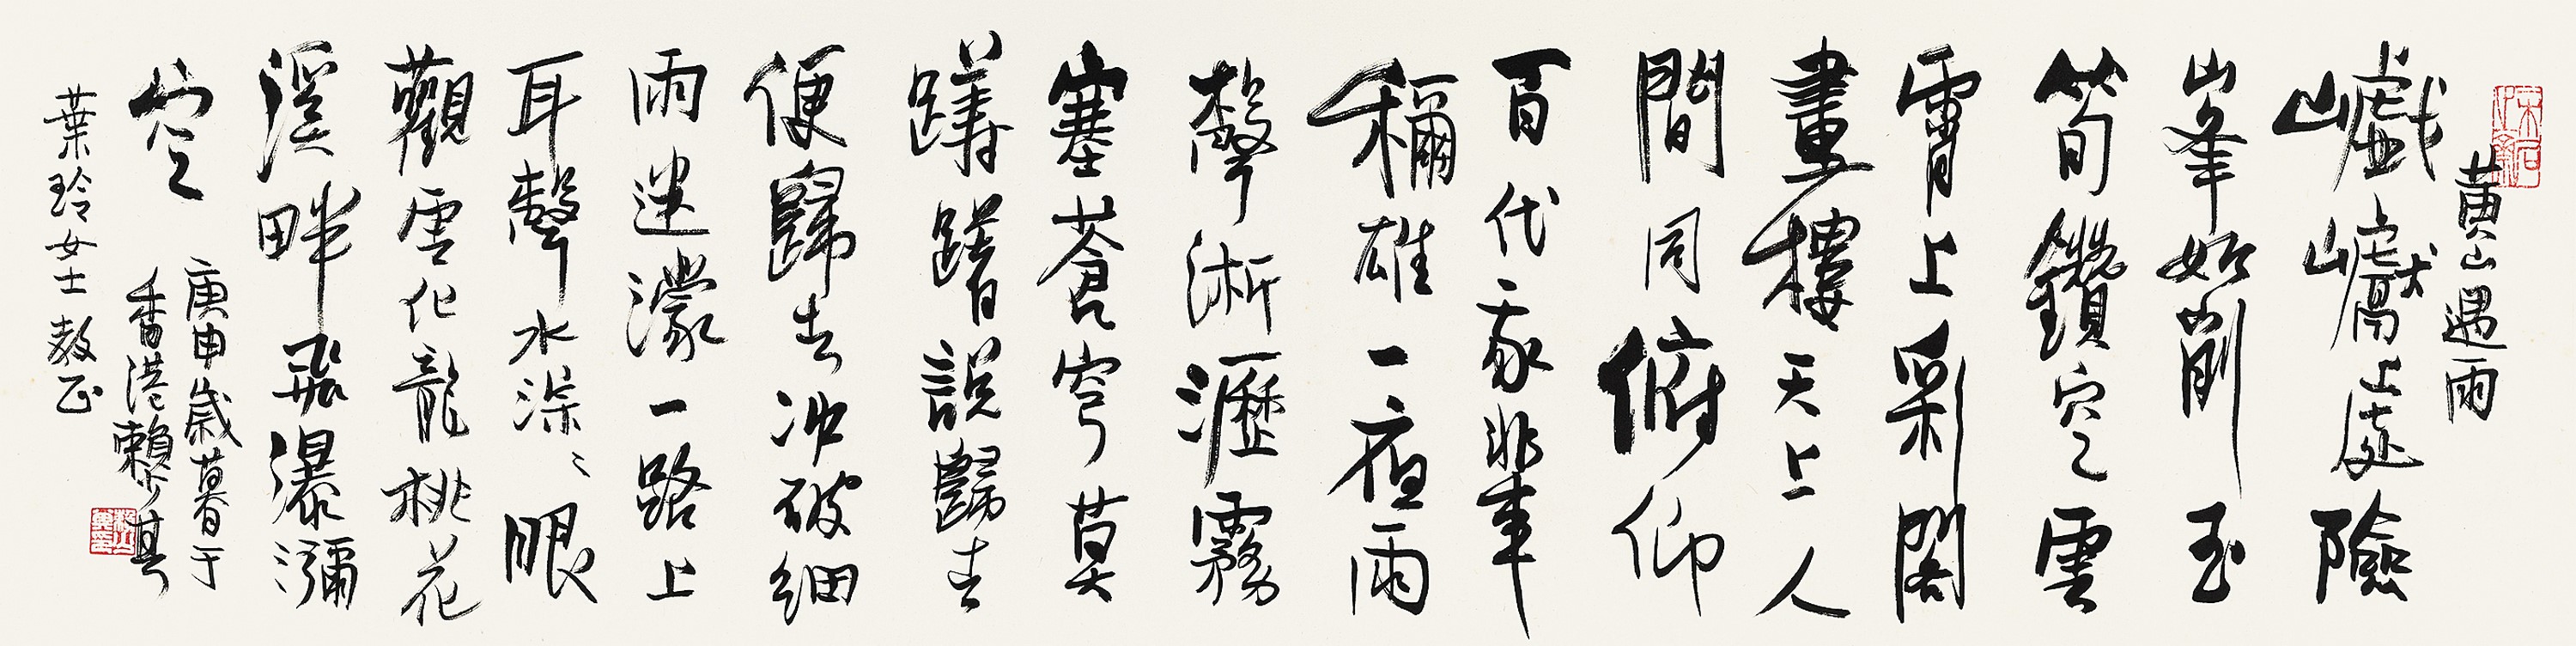 黄山遇雨
巇巘上處險
山峯如削玉
筍鑽空雲
霄上彩閣
畫樓天上人
間同俯仰
百代豪非筆
稱雄一夜雨
聲淅瀝霧
塞蒼穹莫
躊躇誤歸去
便歸去冲破細
雨迷濛一路上
耳聲水淙々眼
觀雲化龍桃花
溪畔飛瀑瀰
空
庚申歲暮于
香港賴少其
葉玲女士教正